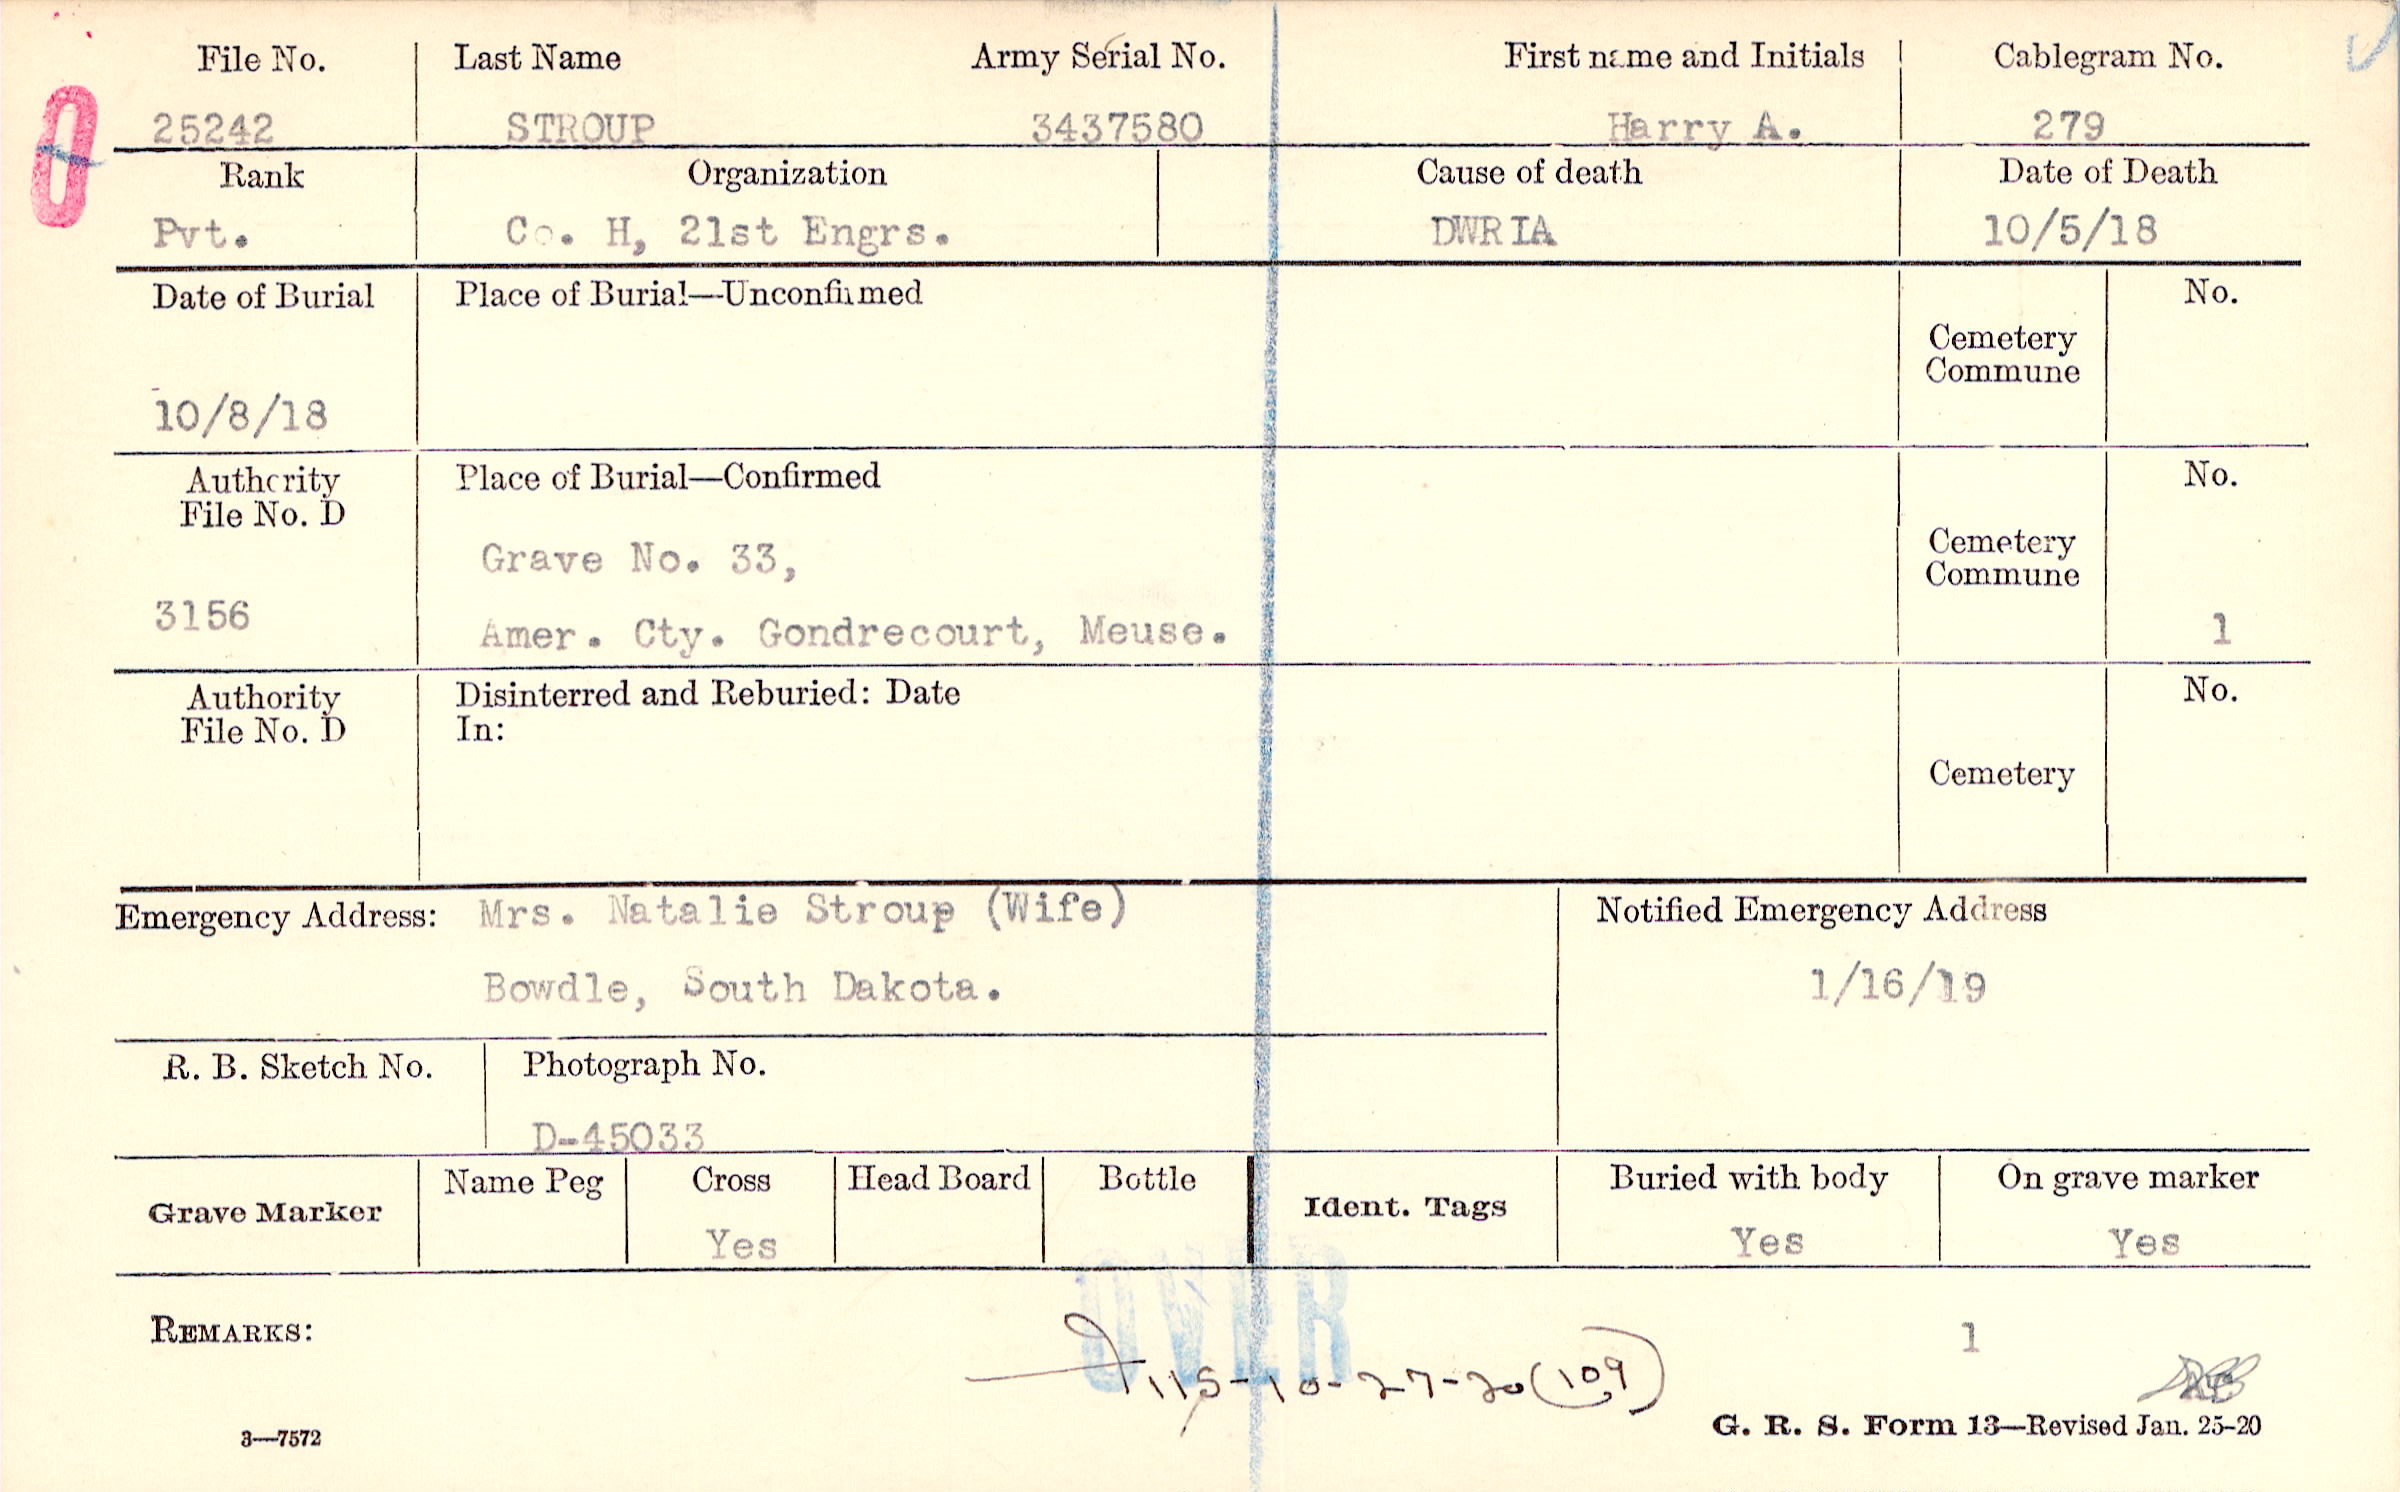 File No. Last Name Army Serial No. First name and Initials Cablegram No.
25242 STROUP 3437580 Harry A. 279
Rank Organization Cause of death Date of Death
Pvt. Co. H, 21st Engrs. DWRIA 10/5/18
Date of Burial Place of Burial—Unconfirmed No.
Cemetery
Commune
10/8/18
Authority Place of Burial—Confirmed No.
File No. D
Grave No. 33, Cemetery
Commune
3156 Amer. Cty. Gondrecourt, Meuse. 1
Authority Disinterred and Reburied: Date No.
File No. D In:
Cemetery
Emergency Address: Mrs. Natalie Stroup (Wife) Notified Emergency Address
Bowdle, South Dakota. 1/16/19
R. B. Sketch No. Photograph No.
D-45033
Grave Marker Name Peg Cross Head Board Bottle Ident. Tags Buried with body On grave marker
Yes Yes Yes
OVER
REMARKS: 1
115-10-27-20 (109)
3—7572 G. R. S. Form 13—Revised Jan. 25-20